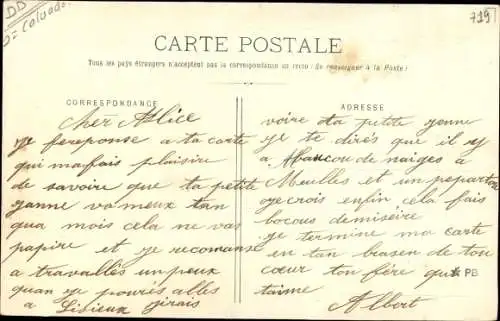 DD
D= Calvados
719
CARTE POSTALE
Tous les pays étrangers n'acceptent pas la correspondance au recto (Se renseigner à la Poste)
CORRESPONDANCE
cher Alice
je fereponse a ta carte
qui mafais plaisire
de savoire que ta petite
ganne va meux tan
qua mois cela ne vas
papire et je recomanse
a travallés un peux
quan je pourés alles
a Lisieux jirais
ADRESSE
voire ta petite ganne
je te dirés que il y
a Baucou de naiges à
Meulles et un
je crois enfin cela fais
bocous demisére
je termine ma carte
en tan brasen de ton
cœur ton fére qui
t'aime
PB
Albert